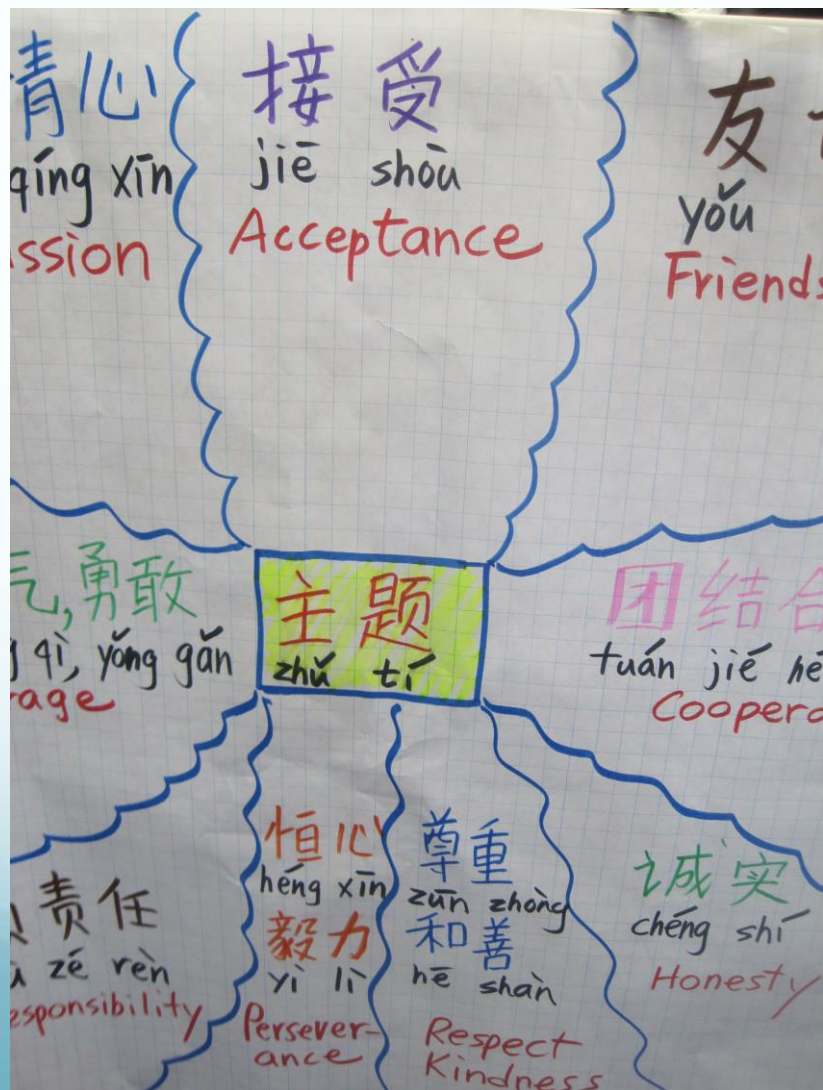 情心
qíng xīn
ssion
接受
jiē shòu
Acceptance
友
yǒu
Friends
气,勇敢
qì, yǒng gǎn
rage
主题
zhǔ tí
团结合
tuán jié hé
Coopera
责任
zé rèn
esponsibility
恒心
héng xīn
毅力
yì lì
Persever-
ance
尊重
zūn zhòng
和善
hē shàn
Respect
Kindness
诚实
chéng shí
Honesty